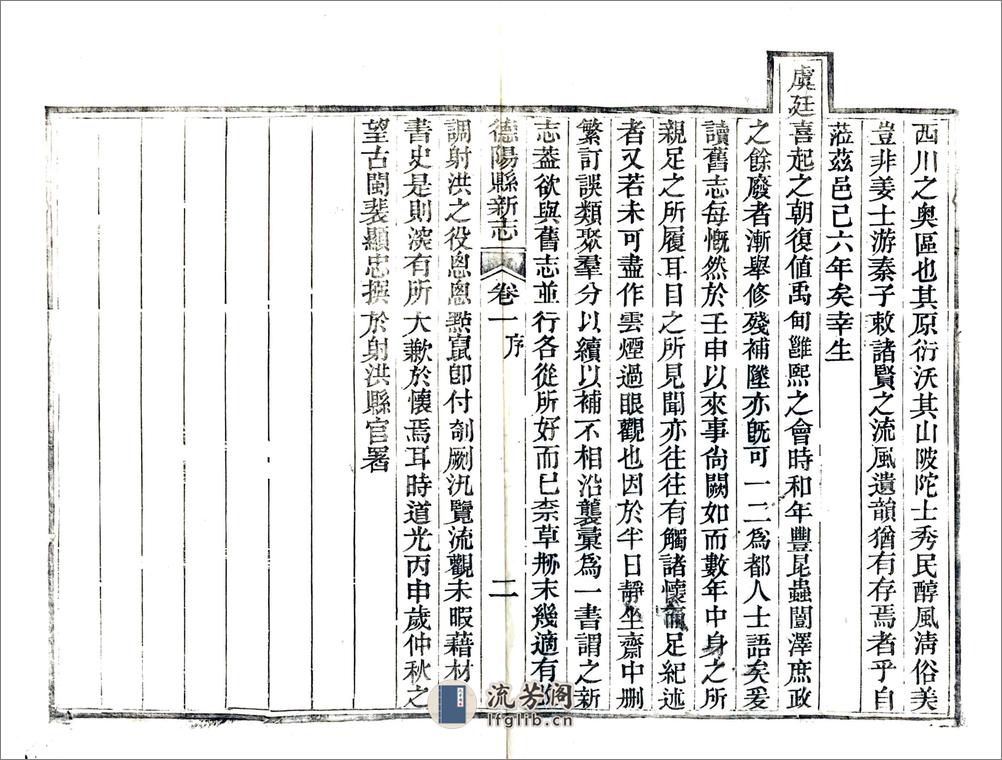 西川之奧區也其原衍沃其山陂陀士秀民醇風淸俗美
豈非姜士游秦子敕諸賢之流風遺韻猶有存焉者乎自
蒞茲邑己六年矣幸生
虞廷喜起之朝復値禹甸雝熙之會時和年豐昆蟲闓澤庶政
之餘廢者漸舉修殘補墜亦旣可一二爲都人士語矣爰
讀舊志每慨然於壬申以來事尙闕如而數年中身之所
親足之所履耳目之所見聞亦往往有觸諸懷而足紀述
者又若未可盡作雲煙過眼觀也因於半日靜坐齋中删
繁訂誤類聚羣分以續以補不相沿襲彙爲一書謂之新
志葢欲與舊志並行各從所好而已柰草刱末幾適有
德陽縣新志 卷一 序 二
調射洪之役悤悤㸃竄卽付剞劂汎覽流觀未暇藉材
書史是則滋有所大歉於懷焉耳時道光丙申歲仲秋之
望古閩裴顯忠撰於射洪縣官署
流芳阁
lfglib.cn